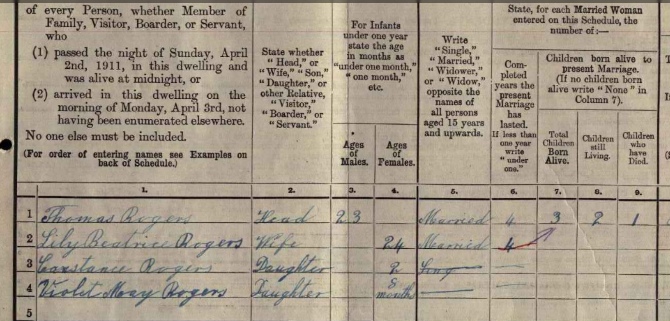 of every Person, whether Member of
Family, Visitor, Boarder, or Servant,
who
(1) passed the night of Sunday, April
2nd, 1911, in this dwelling and
was alive at midnight, or
(2) arrived in this dwelling on the
morning of Monday, April 3rd, not
having been enumerated elsewhere.
No one else must be included.
(For order of entering names see Examples on
back of Schedule.)
State whether
"Head," or
"Wife," "Son,"
"Daughter," or
other Relative,
"Visitor,"
"Boarder," or
"Servant."
For Infants
under one year
state the age
in months as
"under one month,"
"one month,"
etc.
Ages
of
Males.
Ages
of
Females.
Write
"Single,"
"Married,"
"Widower,"
or "Widow,"
opposite the
names of
all persons
aged 15 years
and upwards.
State, for each Married Woman
entered on this Schedule, the
number of:—
Com-
pleted
years the
present
Marriage
has
lasted.
If less than
one year
write
"under
one."
Children born alive to
present Marriage.
(If no children born
alive write "None" in
Column 7).
Total
Children
Born
Alive.
Children
still
Living.
Children
who
have
Died.
1. 2. 3. 4. 5. 6. 7. 8. 9.
1 Thomas Rogers Head 23 Married 4 3 2 1
2 Lily Beatrice Rogers Wife 24 Married 4
3 Constance Rogers Daughter 2
4 Violet May Rogers Daughter 8 months
5